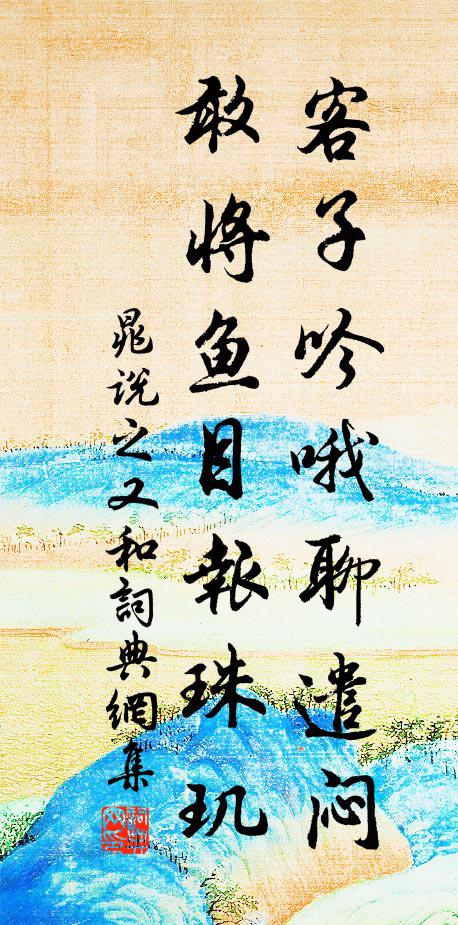 客子吟哦聊遣闷
敢将鱼目報珠玑
晁说之又和詞典網集